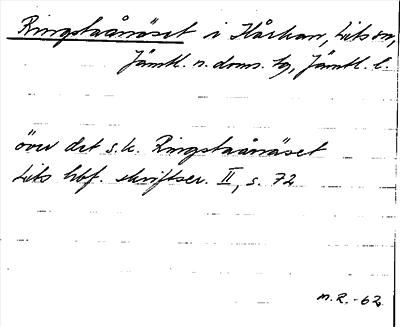 Ringstaånäset i Hårkan, Lits sn,
Jämtl. n. doms. tg, Jämtl. l.
över det s.k. Ringstaånäset
Lits hbf. skriftser. II, s. 72
M.R. -62